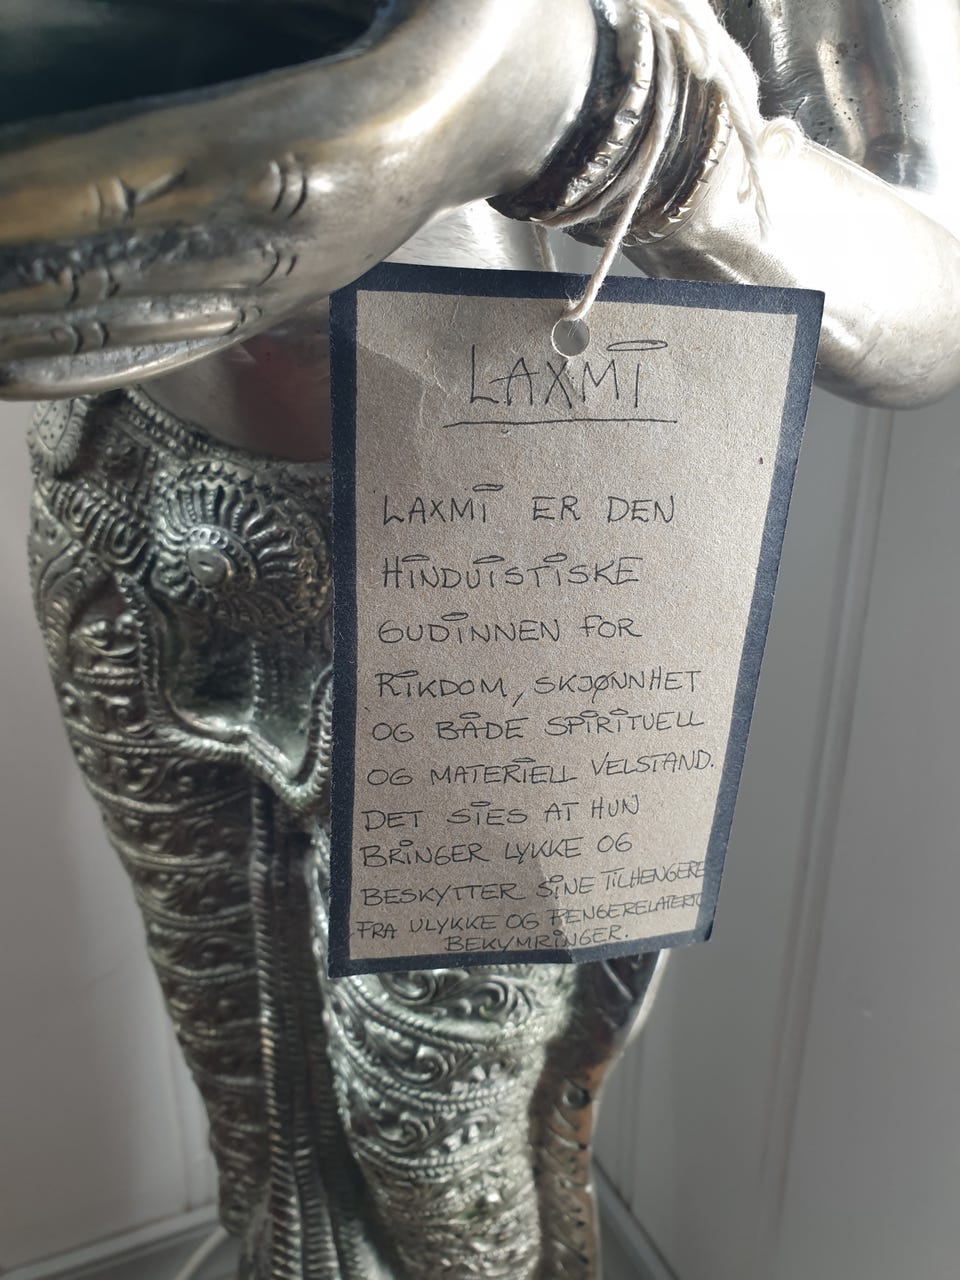 LAXMI
LAXMI ER DEN
HINDUISTISKE
GUDINNEN FOR
RIKDOM, SKJØNNHET
OG BÅDE SPIRITUELL
OG MATERIELL VELSTAND.
DET SIES AT HUN
BRINGER LYKKE OG
BESKYTTER SINE TILHENGERE
FRA ULYKKE OG PENGERELATERTE
BEKYMRINGER.